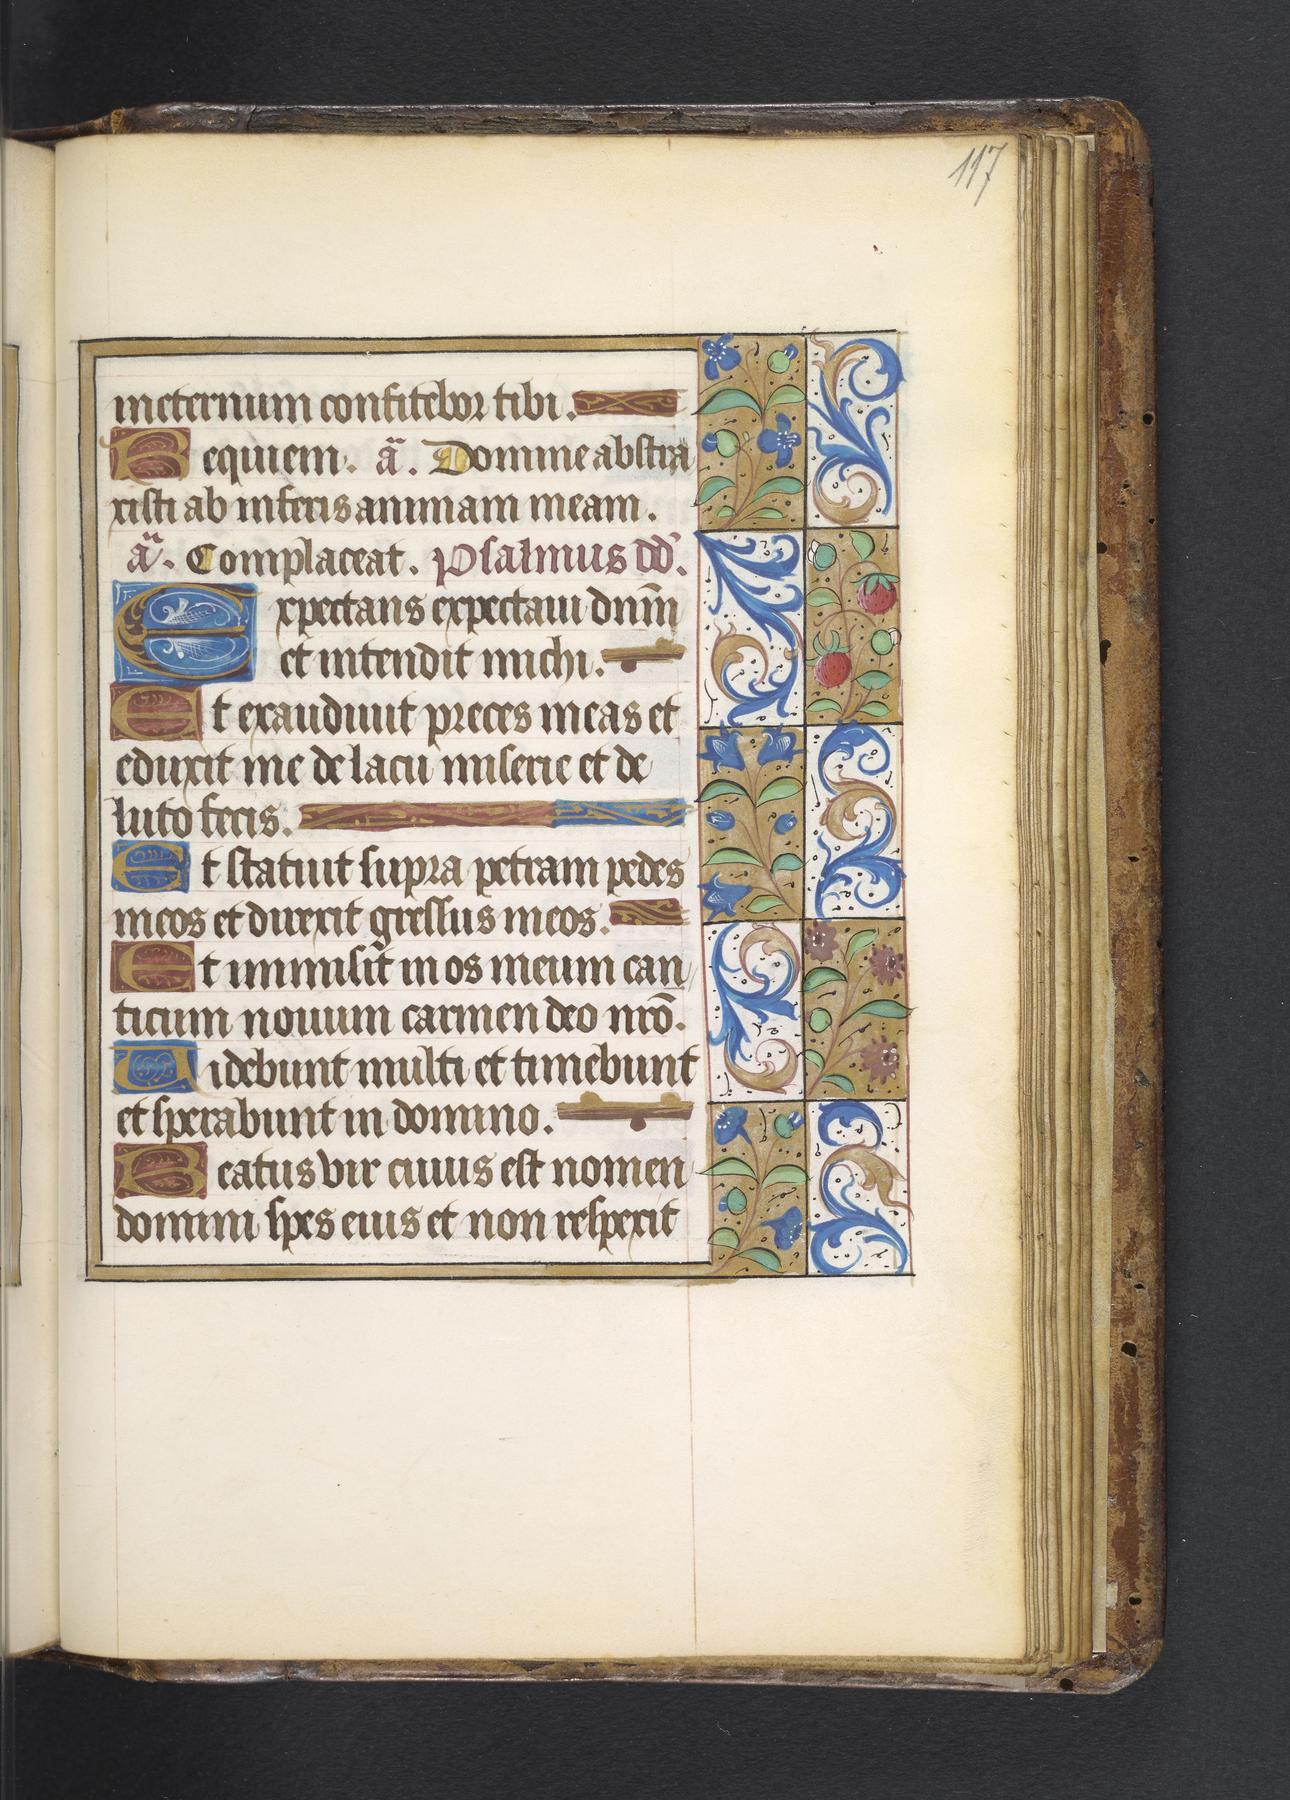 117
ineternum confitebor tibi.
Requiem. ã. Domine abstra
xisti ab inferis animam meam.
ã. Complaceat. Psalmus dd̄.
Expectans expectaui dnm̄
et intendit michi.
Et exaudiuit preces meas et
eduxit me de lacu miserie et de
luto fecis.
Et statuit supra petram pedes
meos et direxit gressus meos.
Et immisit in os meum can
ticum nouum carmen deo nrō.
Uidebunt multi et timebunt
et sperabunt in domino.
Beatus vir cuius est nomen
domini spes eius et non respexit